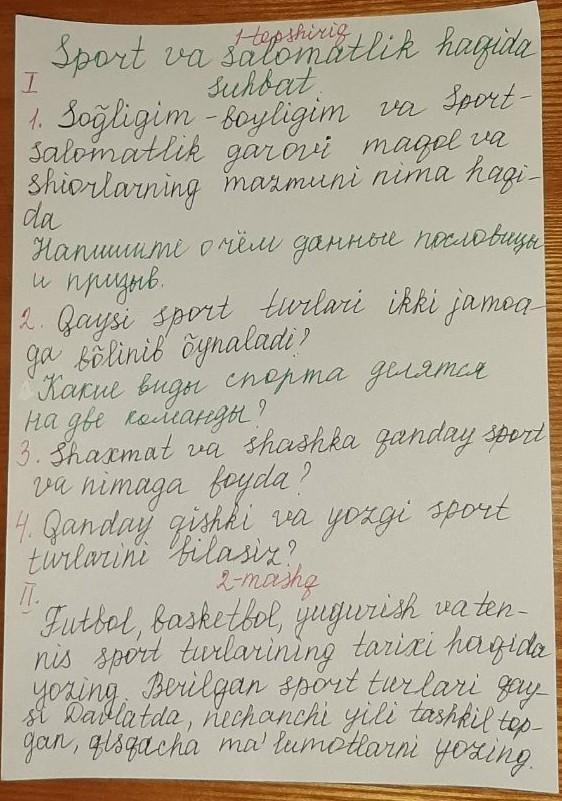 1-topshiriq
Sport va salomatlik haqida
suhbat.
I
1. Soğligim - boyligim va Sport -
salomatlik garovi maqol va
shiorlarning mazmuni nima haqi-
da
Напишите о чём данные пословицы
и призыв.
2. Qaysi sport turlari ikki jamoa-
ga bõlinib õynaladi?
Какие виды спорта делятся
на две команды?
3. Shaxmat va shashka qanday sport
va nimaga foyda?
4. Qanday qishki va yozgi sport
turlarini bilasiz?
2-mashq
II.
Futbol, basketbol, yugurish va ten-
nis sport turlarining tarixi haqida
yozing. Berilgan sport turlari qay-
si Davlatda, nechanchi yili tashkil top-
gan, qisqacha ma'lumotlarni yozing.